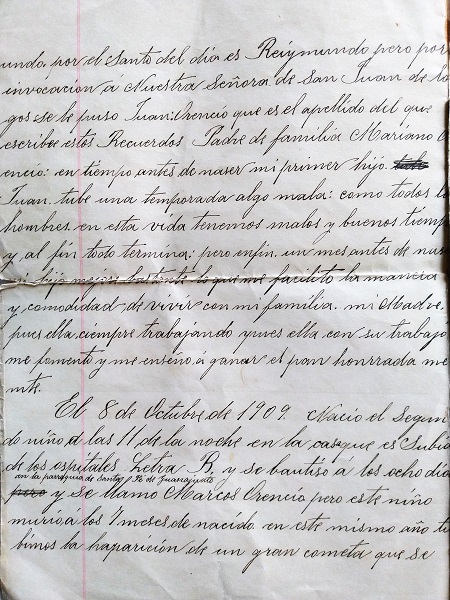 undo, por el Santo del dia es Reiymundo pero por
invocacion á Nuestra Señora de San Juan de la
gos se le puso Juan: Orencio que es el apellido del que
escribe estos Recuerdos Padre de familia Mariano O
encio: en tiempo antes de naser mi primer hijo
Juan. tube una temporada algo mala: como todos l
hombres. en esta vida tenemos malos y buenos tiemp
y, al fin todo termina: pero enfin. un mes antes de nas
hijo mejoro bastante lo que me facilito la manera
y, comodidad, de vivir con mi familia. mi Madre,
pues ella, ciempre trabajando y pues ella, con su trabajo,
me fomento y me enseño, á ganar el pan honrrada me
nte.
El 8 de Octubre, de 1909. Nacio el Segun
do niño, a las 11 de la noche en la casa que es Subid
de los ospitales Letra B. y se bautiso á los ocho dia
en la parroquia de Santa Fé de Guanajuato
y se llamo Marcos Orencio pero este niño
murio a los 7 meses de nacido en este mismo año tu
bimos la haparición de un gran cometa que se